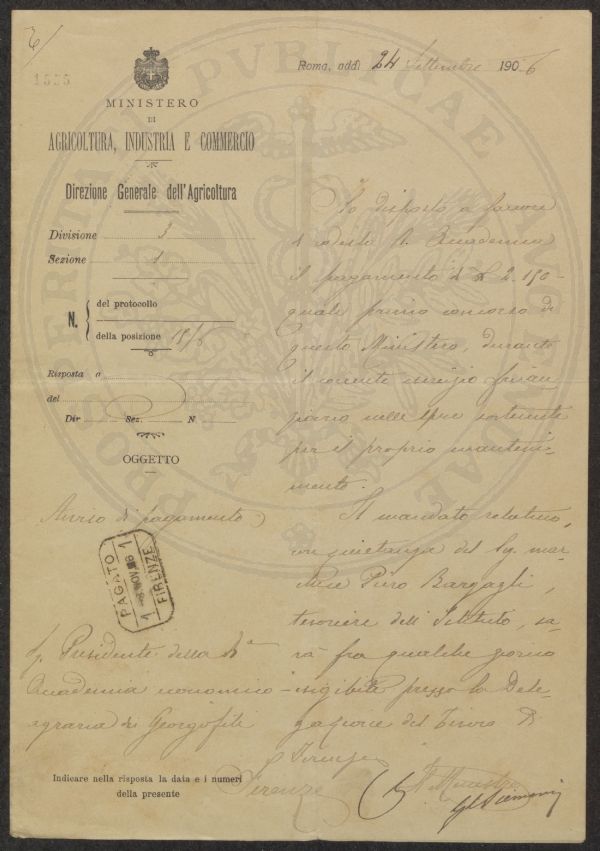 6/
1555
Roma, addì 24 Settembre 1906
MINISTERO
DI
AGRICOLTURA, INDUSTRIA E COMMERCIO
Direzione Generale dell'Agricoltura
Divisione 3
Sezione 1
N. { del protocollo
della posizione 15/6
Risposta a
del
Div Sez. N.
OGGETTO
Avviso di pagamento
PAGATO
NOV
FIRENZE
1 1
Sig. Presidente della Rª
Accademia economico-
agraria dei Georgofili
Firenze
Indicare nella risposta la data e i numeri
della presente
Ho disposto a favore
di codesta R. Accademia
il pagamento di £ 2.150-
quale primo concorso di
questo Ministero, durante
il corrente esercizio finan-
ziario nelle spese sostenute
per il proprio manteni-
mento.
Il mandato relativo,
con quietanza del Sig. mar-
chese Piero Bargagli,
tesoriere dell'Istituto, sa-
rà fra qualche giorno
esigibile presso la Dele-
gazione del Tesoro di
Firenze
Il Ministro
PRO SPERITATI PVBLICAE